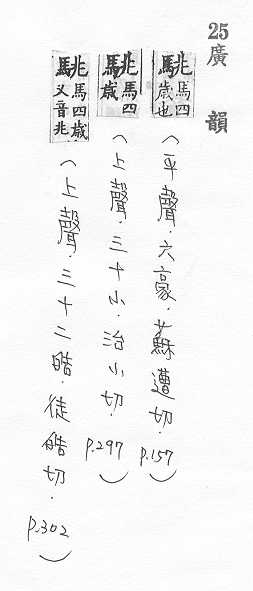 25廣韻
駣馬四歲也（平聲．六豪．蘇遭切．p.157）
駣馬四歲（上聲．三十小．治小切．p.297）
駣馬四歲又音兆（上聲．三十二晧．徒晧切．p.302）